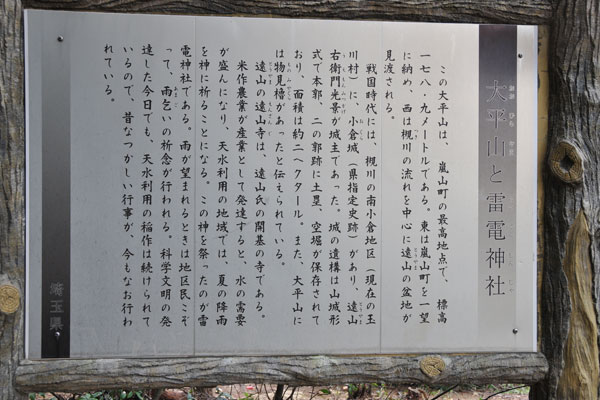 大平山と雷電神社
この大平山は、嵐山町の最高地点で、標高
一七八・九メートルである。東は嵐山町を一望
に納め、西は槻川の流れを中心に遠山の盆地が
見渡される。
戦国時代には、槻川の南小倉地区（現在の玉
川村）に、小倉城（県指定史跡）があり、遠山
右衛門光景が城主であった。城の遺構は山城形
式で本郭、二の郭跡に土塁、空堀が保存されて
おり、面積は約二ヘクタール。また、大平山に
は物見櫓があったと伝えられている。
遠山の遠山寺は、遠山氏の開基の寺である。
米作農業が産業として発達すると、水の需要
が盛んになり、天水利用の地域では、夏の降雨
を神に祈ることになる。この神を祭ったのが雷
電神社である。雨が望まれるときは地区民こぞ
って、雨乞いの祈念が行われる。科学文明の発
達した今日でも、天水利用の稲作は続けられて
いるので、昔なつかしい行事が、今もなお行わ
れている。
埼玉県